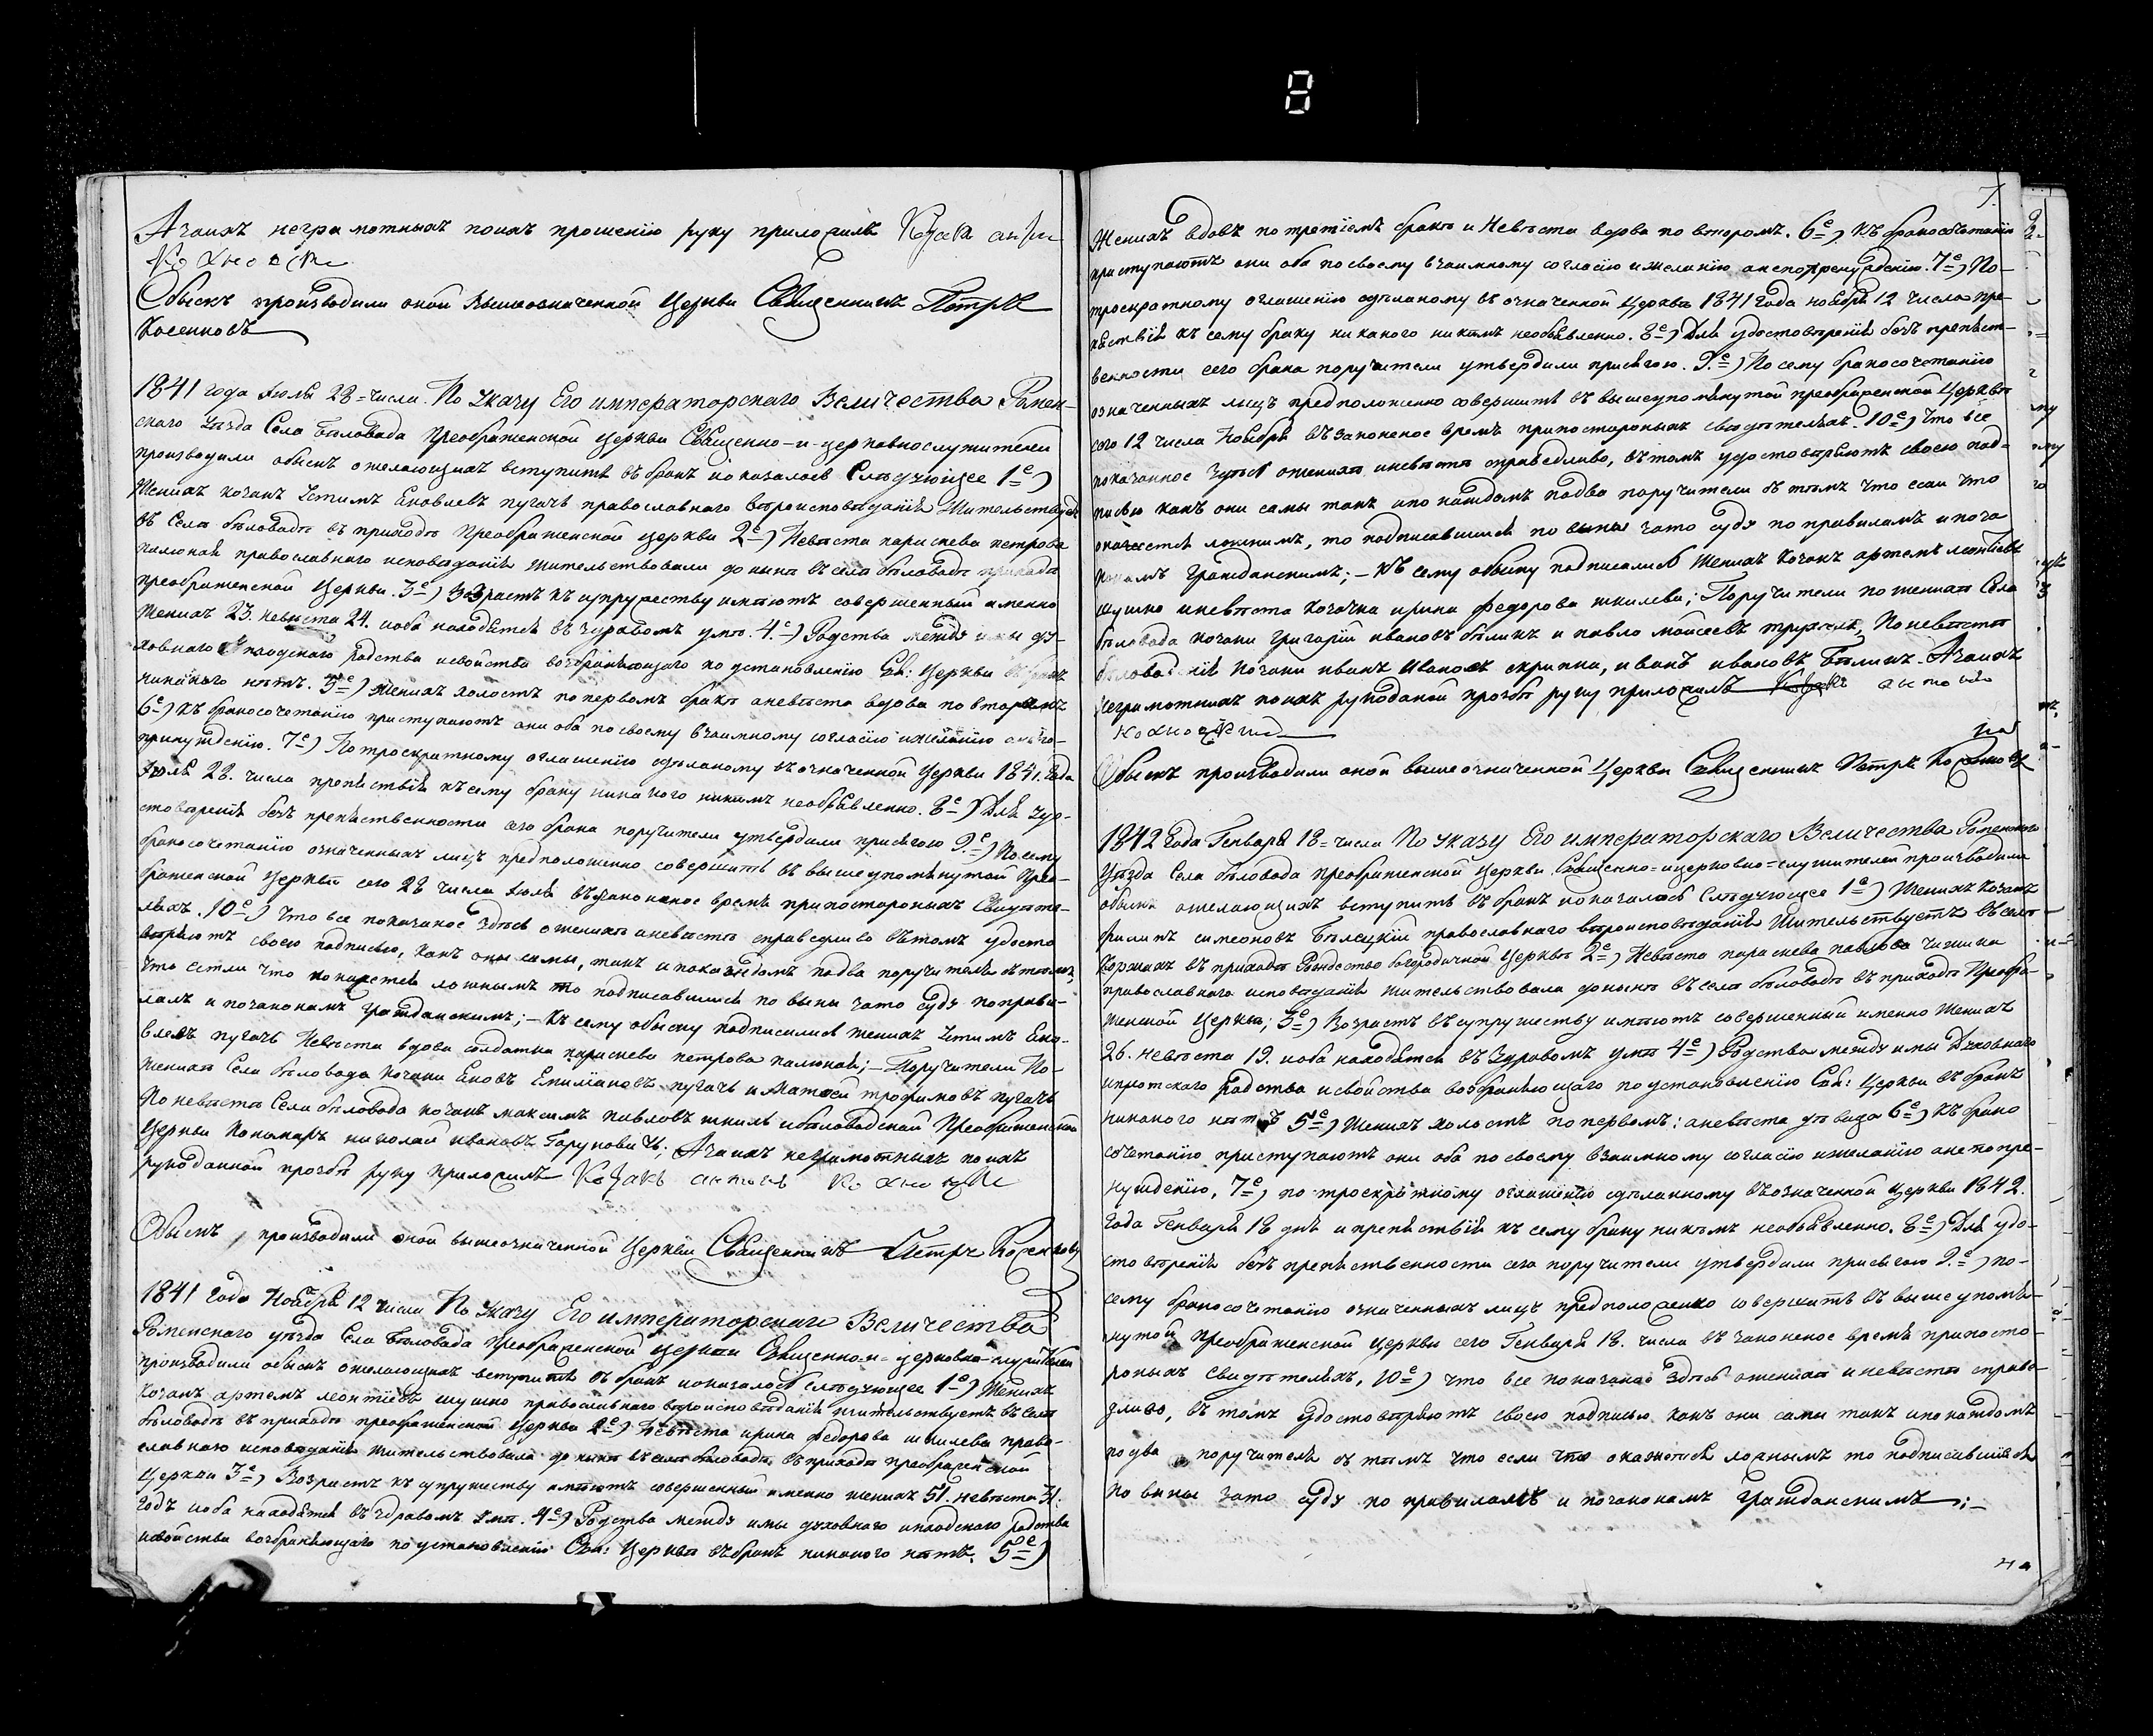 А заихъ неграмотныхъ поихъ прошенію руку приложилъ Козакъ антон
Кохновскі
Обыскъ производили оной вышеозначенной Церкви Священникъ Петръ
Косенковъ
1841 года Іюля 28=числа. По Указу Его императорскаго Величества Ромен-
скаго Уѣзда Села Бѣловода Преображенской Церкви Священно-и-церковнослужители
производили обыскъ ожелающихъ вступить въ бракъ иоказалось Слѣдующее 1е)
Женихъ козакъ Устимъ Яковлевъ пугачъ православнаго вѣроисповѣданія Жительствуетъ
въ Селѣ бѣловодѣ въ приходѣ Преображенской церкви 2е) Невѣста параскева петрова
православнаго исповѣданія жительствовала до нынѣ въ селѣ бѣловодѣ прихода
преображенской Церкви. 3е) Возрастъ къ супружеству имѣютъ совершенный именно
Женихъ 23. невѣста 24. иоба находятся въ здравомъ умѣ. 4е) Родства между ими ду-
ховнаго и плодскаго родства исвойства возбраняющаго по установленію Св: Церкви въ бракъ
никакого нѣтъ. 5е) женихъ холостъ попервомъ бракѣ аневѣста вдова по второмъ
6е) къ бракосочетанію приступаютъ они оба по своему взаимному согласію ижеланію анепо-
принужденію. 7е) По троекратному оглашенію сдѣланому въ означенной Церкви 1841. года
Іюля 28. числа препятствія къ сему браку никакого никимъ необъявленно. 8е) Для удо-
стовѣренія безъ препятственности сего брака поручители утвердили присягою 9е) По сему
бракосочетанію означенныхъ лицъ предположенно совершить въ вышеупомянутой Прео-
браженской Церквѣ сего 28 числа Іюля въ законное время при постороныхъ Свидѣте-
ляхъ. 10е) Что все показаное здѣсь о женихѣ аневѣстѣ справедливо въ томъ удосто
вѣряютъ своею подписью, какъ они самы, такъ и по каждомъ по два поручителя съ тѣмъ,
Что естли что покажется ложнымъ то подписавшіися по вины зато Суду по прави-
ламъ и по законамъ Гражданскимъ; — къ сему обыску подписались женихъ Устимъ Яко-
влевъ пугачъ Невѣста вдова солдатка параскева петрова; — Поручители По-
женихѣ Села бѣловода козаки Яковъ Емиліановъ пугачъ и Матвѣй трофимовъ пугачъ
По невѣстѣ Села бѣловода козакъ максимъ павловъ шкиль ибѣловодской Преображенской
Церкви Пономарь николай ивановъ Горуновичъ; А заихъ неграмотныхъ поихъ
рукоданной прозбѣ руку приложилъ Козакъ антонъ Кохновскі
Обыскъ производили оной вышеозначенной Церкви Священникъ Петръ Косенковъ
1841 года Ноября 12 числа По Указу Его императорскаго Величества
Роменскаго уѣзда Села Бѣловода Преображенской церкви Священно-и=церковно-служители
производили обыскъ ожелающихъ вступить въ бракъ иоказалось слѣдующее 1е) Женихъ
Козакъ артемъ леонтіевъ шушко православнаго вѣроисповѣданія жительствуетъ въ селѣ
бѣловодѣ въ приходѣ преображенской Церкви 2е) Невѣста ирина федорова шкилева право-
славнаго исповѣданія жительствовала до нынѣ въ селѣ бѣловодѣ въ приходѣ преображенской
Церкви 3е) Возрастъ къ супружеству имѣютъ совершенный именно женихъ 51. невѣста 31.
годъ иоба находятся въ здравомъ умѣ. 4е) Родства между имы духовнаго иплодскаго родства
исвойства возбраняющаго по установленію Свя: Церкви въ бракъ никакого нѣтъ. 5е)
7.
Женихъ вдовъ по третіемъ бракѣ и Невѣста вдова по второмъ. 6е) къ бракосочетанію
приступаютъ они оба по своему взаимному согласію ижеланію анепопренуждѣнію. 7е) По-
троекратному оглашенію сдѣланому въ означенной Церкви 1841 года ноября 12 числа пре-
пятствія къ сему браку никакого никимъ необъявленно. 8е) Для удостовѣренія безъ препятст-
венности сего брака поручители утвердили присягою. 9е) По сему бракосочетанію
означенныхъ лицъ предположенно совершить въ вышеупомянутой преображенской Церквѣ
сего 12 числа Ноября въ законеное время при постороныхъ свидѣтеляхъ. 10е) Что все
показанное здѣсь ожених­ѣ иневѣстѣ справедливо, въ томъ удостовѣряютъ своею под-
писью какъ они самы такъ ипо каждомъ подва поручители съ тѣмъ что если что
окажется ложнимъ, то подписавшіися по вины зато суду по правиламъ ипоза
конамъ Гражданскимъ; — къ сему обыску подписались Женихъ козакъ артемъ леонтіевъ
шушко иневѣста козачка ирина федорова шкилева; Поручители по женихѣ Села
бѣловода козаки григорій ивановъ бѣликъ и павло моисеевъ, По невѣстѣ
козаки иванъ Ивановъ скрипка, иванъ ивановъ Бѣликъ. А заихъ
неграмотнихъ поихъ рукоданой прозбѣ руку приложилъ Козакъ антонъ
кохновскій
Обыскъ производили оной вышеозначенной Церкви Священникъ Петръ Косенковъ
1842 года Генваря 18=числа По Указу Его императорскаго Величества Роменскаго
Уѣзда Села бѣловода преображенской Церкви Священно=ицерковно=служители производили
обыскъ ожелающихъ вступить въ бракъ иоказалось Слѣдующее 1е) Женихъ козакъ
филипъ симеоновъ Бѣлецкій православнаго вѣроисповѣданія Жительствуетъ въ селѣ
Коржахъ въ приходѣ Рождество богородичной Церквѣ 2е) Невѣста параскева павлова
православнаго исповѣданія жительствовала до нынѣ въ селѣ бѣловодѣ въ приходѣ Преобра-
женской Церкви; 3е) Возрастъ въ супружеству имѣютъ совершенный именно Женихъ
26. невѣста 19. иоба находятся въ здравомъ умѣ 4е) Родства между имы Духовнаго
иплотскаго родства исвойства возбраняющаго по установленію Свя: Церкви въ бракъ
никакого нѣтъ 5е) Женихъ холостъ попервомъ: аневѣста дѣвица 6е) къ брако
сочетанію приступаютъ они оба по своему взаимному согласію ижеланію анепопре-
нуждению, 7е) по троекратному оглашенію сдѣланному въ означенной Церкви 1842.
года Генваря 18 дня и препятствія къ сему браку никѣмъ необъявленно. 8е) Для удо-
стовѣренія безъ препятственности сего поручители утвердили присягою 9е) по-
сему бракосочетанію означенныхъ лицъ предположенно совершить въ вышеупомя-
нутой преображенской Церкви сего Генваря 18. числа въ законеное время при посто-
роныхъ свидѣтеляхъ, 10е) что все показаное здѣсь оженихѣ иневѣстѣ справе-
дливо, въ томъ удостовѣряютъ своею подписью какъ они сами такъ ипо каждомъ
по два поручителя съ тѣмъ что если что окажется ложнымъ то подписавшіися
по вины зато суду по правиламъ и позаконамъ Гражданскимъ; —